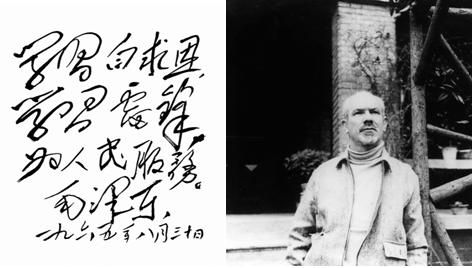 学习白求恩，
学习雷锋，
为人民服务。
毛泽东，
一九六五年八月三十日